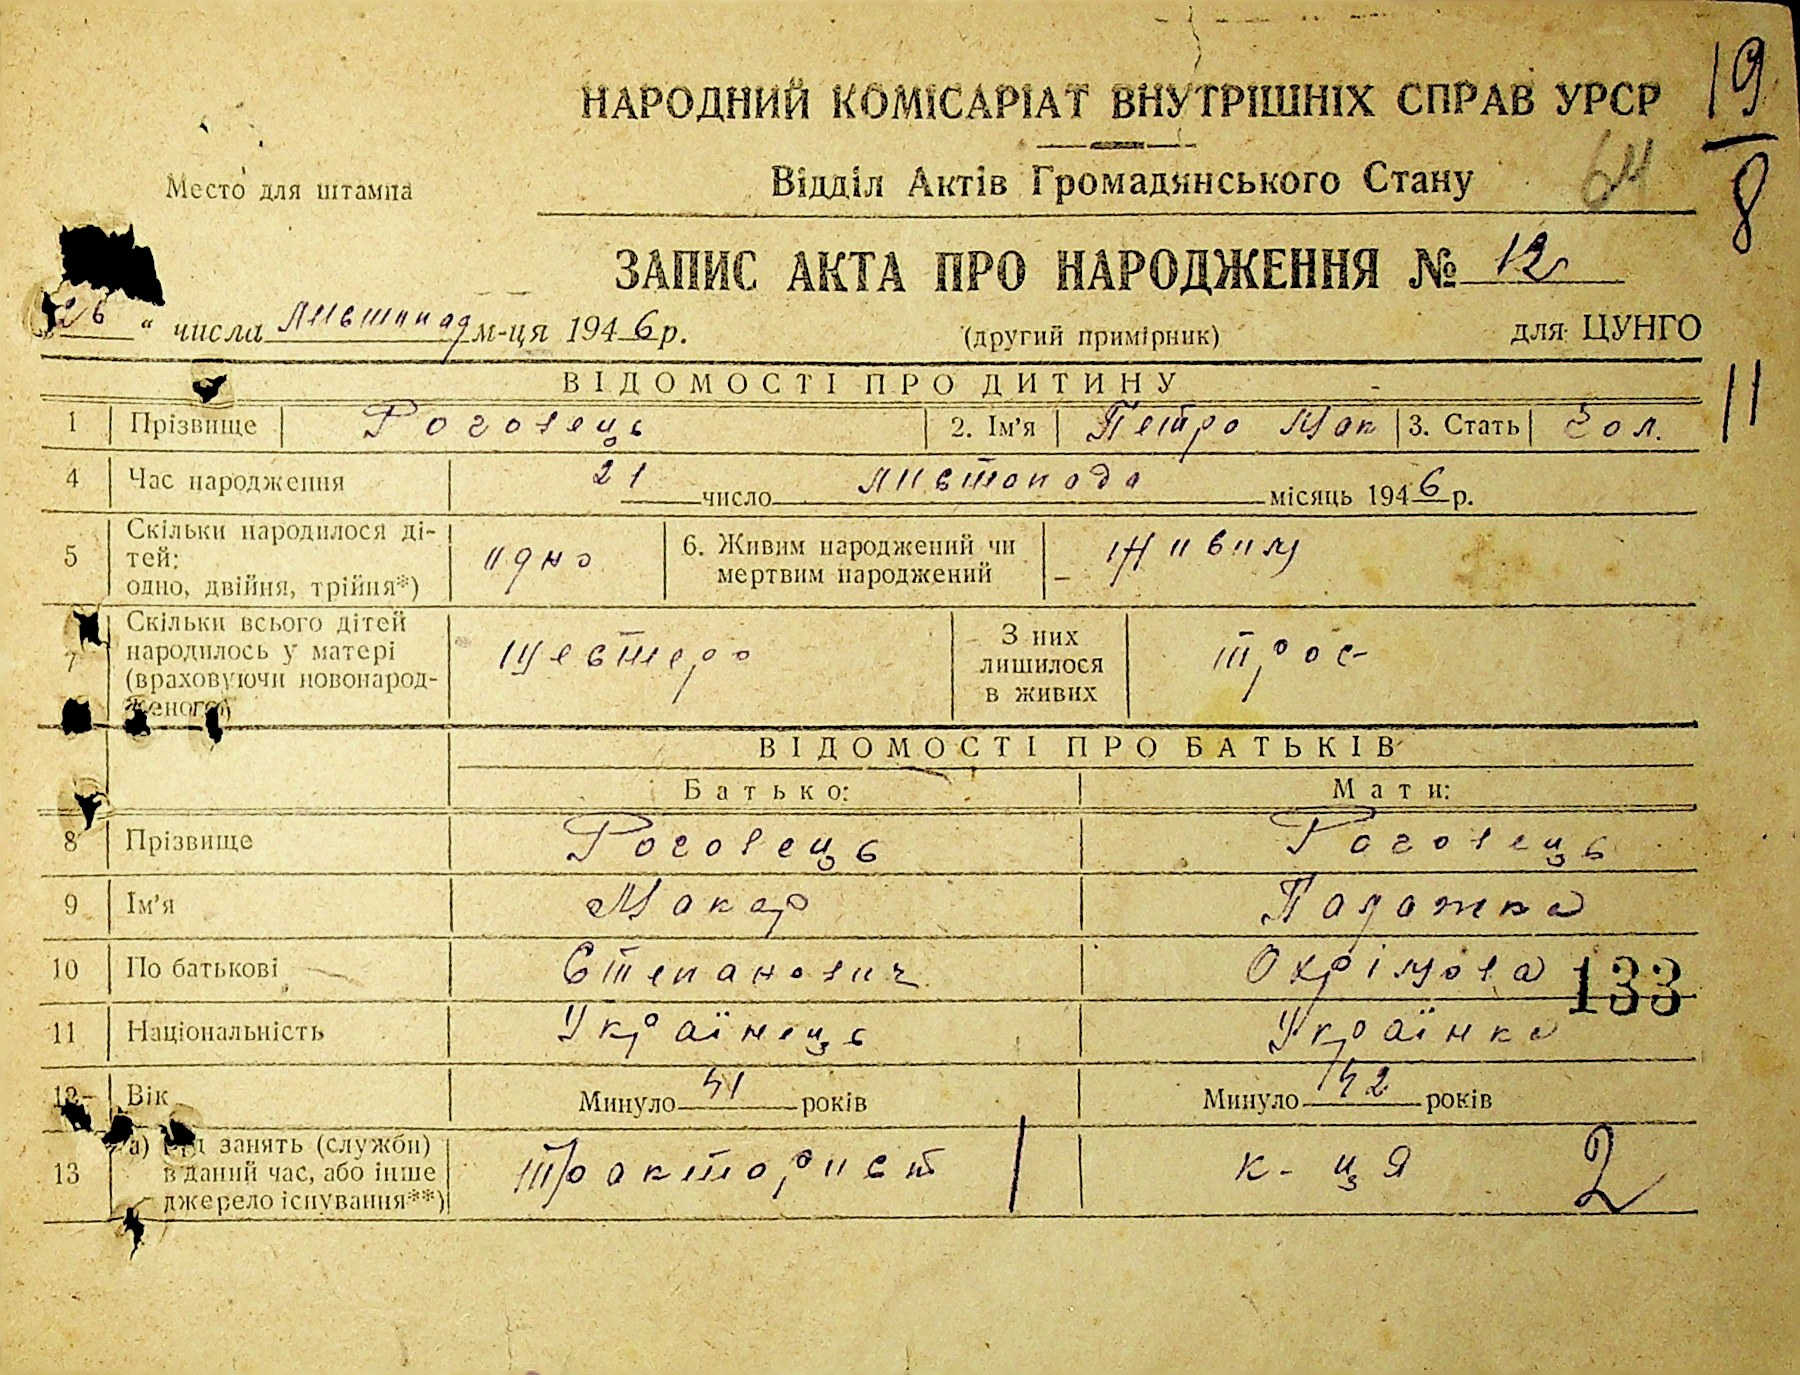 19
8
НАРОДНИЙ КОМІСАРІАТ ВНУТРІШНІХ СПРАВ УРСР
64
Место для штампа
Відділ Актів Громадянського Стану
ЗАПИС АКТА ПРО НАРОДЖЕННЯ № 12
26 " числа Листопад м-ця 1946 р. (другий примірник) для ЦУНГО
11
ВІДОМОСТІ ПРО ДИТИНУ
1 Прізвище Роговець 2. Ім'я Петро Мак 3. Стать Чол.
4 Час народження 21 число листопада місяць 1946 р.
5 Скільки народилося ді-
тей:
одно, двійня, трійня*) одно 6. Живим народжений чи
мертвим народжений Живим
7 Скільки всього дітей
народилось у матері
(враховуючи новонарод-
женого) Шестеро З них
лишилося
в живих троє
ВІДОМОСТІ ПРО БАТЬКІВ
Батько: Мати:
8 Прізвище Роговець Роговець
9 Ім'я Макар Палажка
10 По батькові Степанович Охрімова 133
11 Національність Українець Українка
12 Вік Минуло 41 років Минуло 42 років
13 а) Рід занять (служби)
в даний час, або інше
джерело існування**) Тракторист к-ця 2